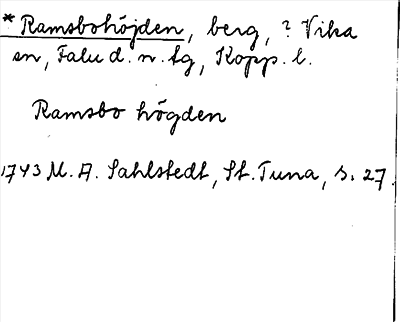 *Ramsbohöjden, berg, ? Vika
sn, Falu d. n. tg, Kopp. l.
Ramsbo högden
1743 M. A. Sahlstedt, St. Tuna, s. 27.